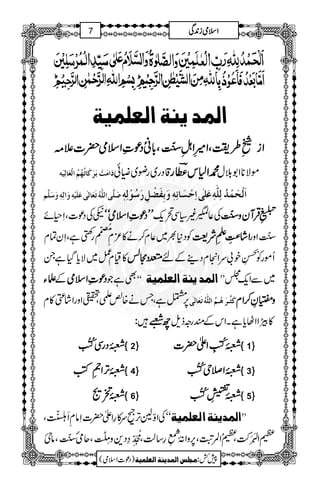 7
اسلامی زندگی
اَلْحَمْدُ لِلّٰہِ رَبِّ الْعٰلَمِیْنَ وَالصَّلٰوۃُ وَالسَّلَامُ عَلٰی سَیِّدِ الْمُرْسَلِیْنَ
اَمَّابَعْدُ فَاَعُوْذُ بِاللّٰہِ مِنَ الشَّیْطٰنِ الرَّجِیْمِ ؕ بِسْمِ اللّٰہِ الرَّحْمٰنِ الرَّحِیْمِ ؕ
المدینۃ العلمیۃ
از شیخِ طریقت، امیرِ اہلِ سنّت، بانیِ دعوتِ اسلامی حضرت علّامہ
مولانا ابوبلال محمد الیاس عطّار قادری رضوی ضیائی دَامَتْ بَرَکَاتُہُمُ الْعَالِیَہ
اَلْحَمْدُ لِلّٰہِ عَلٰی اِحْسَانِہٖ وَ بِفَضْلِ رَسُوْلِہٖ صَلَّی اللّٰہُ تَعَالٰی عَلَیْہِ وَاٰلِہٖ وَسَلَّمَ
تبلیغِ قرآن و سنّت کی عالمگیر غیر سیاسی تحریک ”دعوتِ اسلامی“ نیکی کی دعوت، اِحیائے
سنّت اور اشاعتِ علمِ شریعت کو دنیا بھر میں عام کرنے کا عزمِ مُصمّم رکھتی ہے، اِن تمام
اُمور کو بحسنِ خوبی سر انجام دینے کے لئے متعدّد مجالس کا قیام عمل میں لایا گیا ہے جن
میں سے ایک مجلس ”المدینۃ العلمیۃ“ بھی ہے جو دعوتِ اسلامی کے عُلماء
و مُفتیانِ کرام کَثَّرَھُمُ اللّٰہُ تَعَالٰی پر مشتمل ہے، جس نے خالص علمی، تحقیقی اور اشاعتی کام
کا بیڑا اٹھایا ہے۔ اس کے مندرجہ ذیل چھ شعبے ہیں:
{1} شعبۂ کتُبِ اعلیٰ حضرت {2} شعبۂ درسی کُتُب
{3} شعبۂ اصلاحی کُتُب {4} شعبۂ تراجمِ کتب
{5} شعبۂ تفتیشِ کُتُب {6} شعبۂ تخریج
”المدینۃ العلمیۃ“ کی اوّلین ترجیح سرکارِ اعلیٰ حضرت اِمامِ اَہلسنّت،
عظیم البَرَکت، عظیمُ المرتبت، پروانۂ شمعِ رِسالت، مُجَدِّدِ دین و مِلَّت، حامیِ سنّت، ماحیِ
پیش کش: مجلس المدینۃ العلمیۃ (دعوتِ اسلامی)